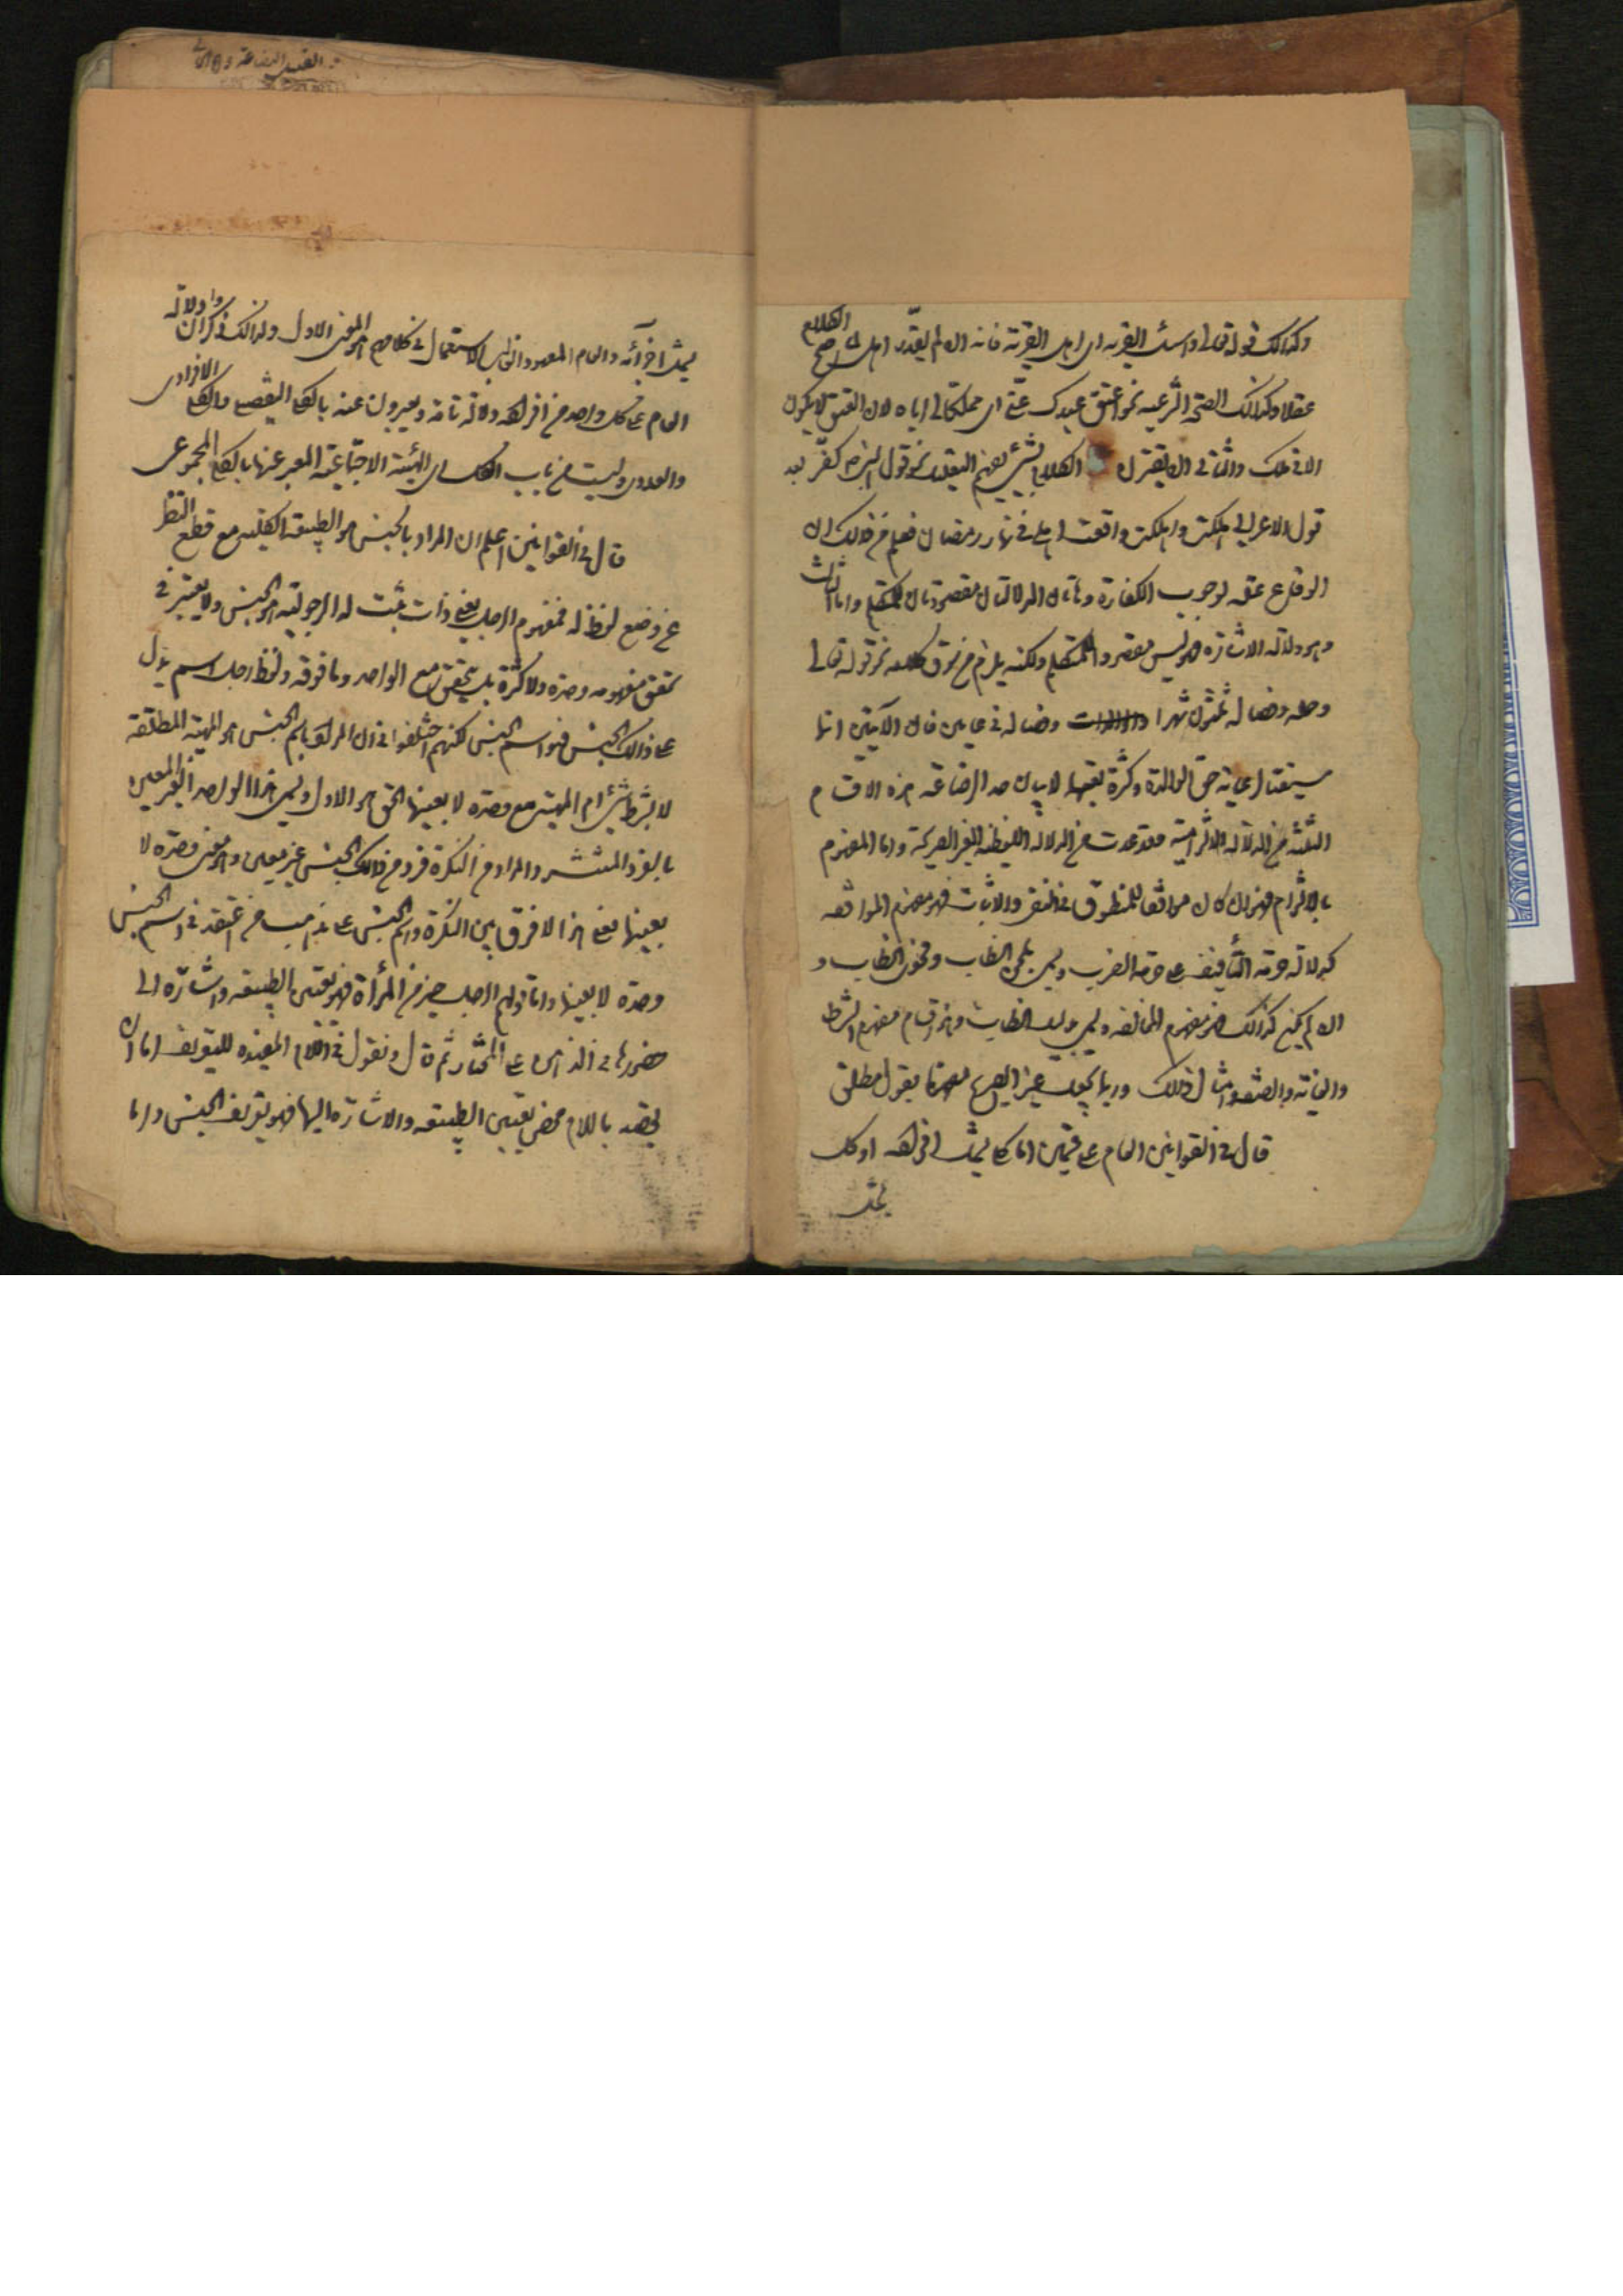 وكذلك قوله تعالى واسئل القرية اى اهل القرية فانه ان لم يقدر اهل لما صح الكلام
عقلا وكذلك الصحة الشرعية نحو اعتق عبدك عنّى اى مملكا لى اياه لان العتق لا يكون
الا فى ملك والثانى ان يقترن الكلام بشئ يفهم التعليل نحو قول النبى ص كفّر بعد
قول الاعرابى هلكت واهلكت واقعت اهلى فى نهار رمضان فعلم من ذلك ان
الوقاع علة لوجوب الكفارة وهاتان الدلالتان مقصودتان للمتكلم واما الثالث
وهو دلالة الاشارة فهو ليس مقصودا للمتكلم ولكنه يلزم من كلامه نحو قوله تعالى
وحمله وفصاله ثلثون شهرا وفصاله فى عامين فان الآيتين
حق الوالدة وكثرة تعبها لا بيان هذه الاقسام
الثلثة من الدلالة الالتزامية من الدلالة اللفظية الغير الصريحة واما المفهوم
بالالتزام فهو ان كان موافقا للمنطوق فى النفى والاثبات فهو مفهوم الموافقة
كدلالة حرمة التأفيف على حرمة الضرب ويسمى بلحن الخطاب وفحوى الخطاب و
ان لم يكن كذلك فهو مفهوم المخالفة ويسمى دليل الخطاب وهو اقسام مفهوم الشرط
والغاية والصفة وامثال ذلك وربما يجعل غير الصريح مفهوما بقول مطلق
قال فى القوانين العام على قسمين اما كلى يشمل افراده او كل
يشمل
يشمل اجزائه والعام المعهود الاستعمال فى كلامهم هو المعنى الاول ولذلك ذكروا ان دلالة
العام على كل واحد من افراده دلالة تامة ويعبرون عنه بالكلى التفصيلى والكلى الافرادى
والعددى وليست من باب الكل اى الهيئة الاجتماعية المعبر عنها بالكلى المجموعى
قال فى القوانين اعلم ان المراد بالجنس هو الطبيعة الكلية مع قطع النظر
عن وضع لفظ له فمفهوم الرجل يعنى ذات ثبت له الرجولية هو الجنس ولا يعتبر فى
تحقق مفهومه وحدة ولا كثرة بل يتحقق مع الواحد وما فوقه ولفظ رجل اسم يدل
على ذلك الجنس فهو اسم الجنس لكنهم اختلفوا فى ان المراد باسم الجنس هو المهية المطلقة
لا بشرط شئ ام المهية مع وحدة لا بعينها الحق هو الاول ويسمى هذا الواحد الغير المعين
بالفرد المنتشر والمراد من النكرة فرد من ذلك الجنس غير معين وهو معنى وحدة لا
بعينها فعلى هذا لا فرق بين النكرة واسم الجنس على مذهب من اعتقد فى اسم الجنس
وحدة لا بعينها واما قولهم الرجل خير من المرأة فهو تعيين الطبيعة واشارة الى
حضورها فى الذهن على المختار ثم قال ونقول فى اللام المفيدة للتعريف اما ان
يقصد باللام محض تعيين الطبيعة والاشارة اليها فهو تعريف الجنس واما